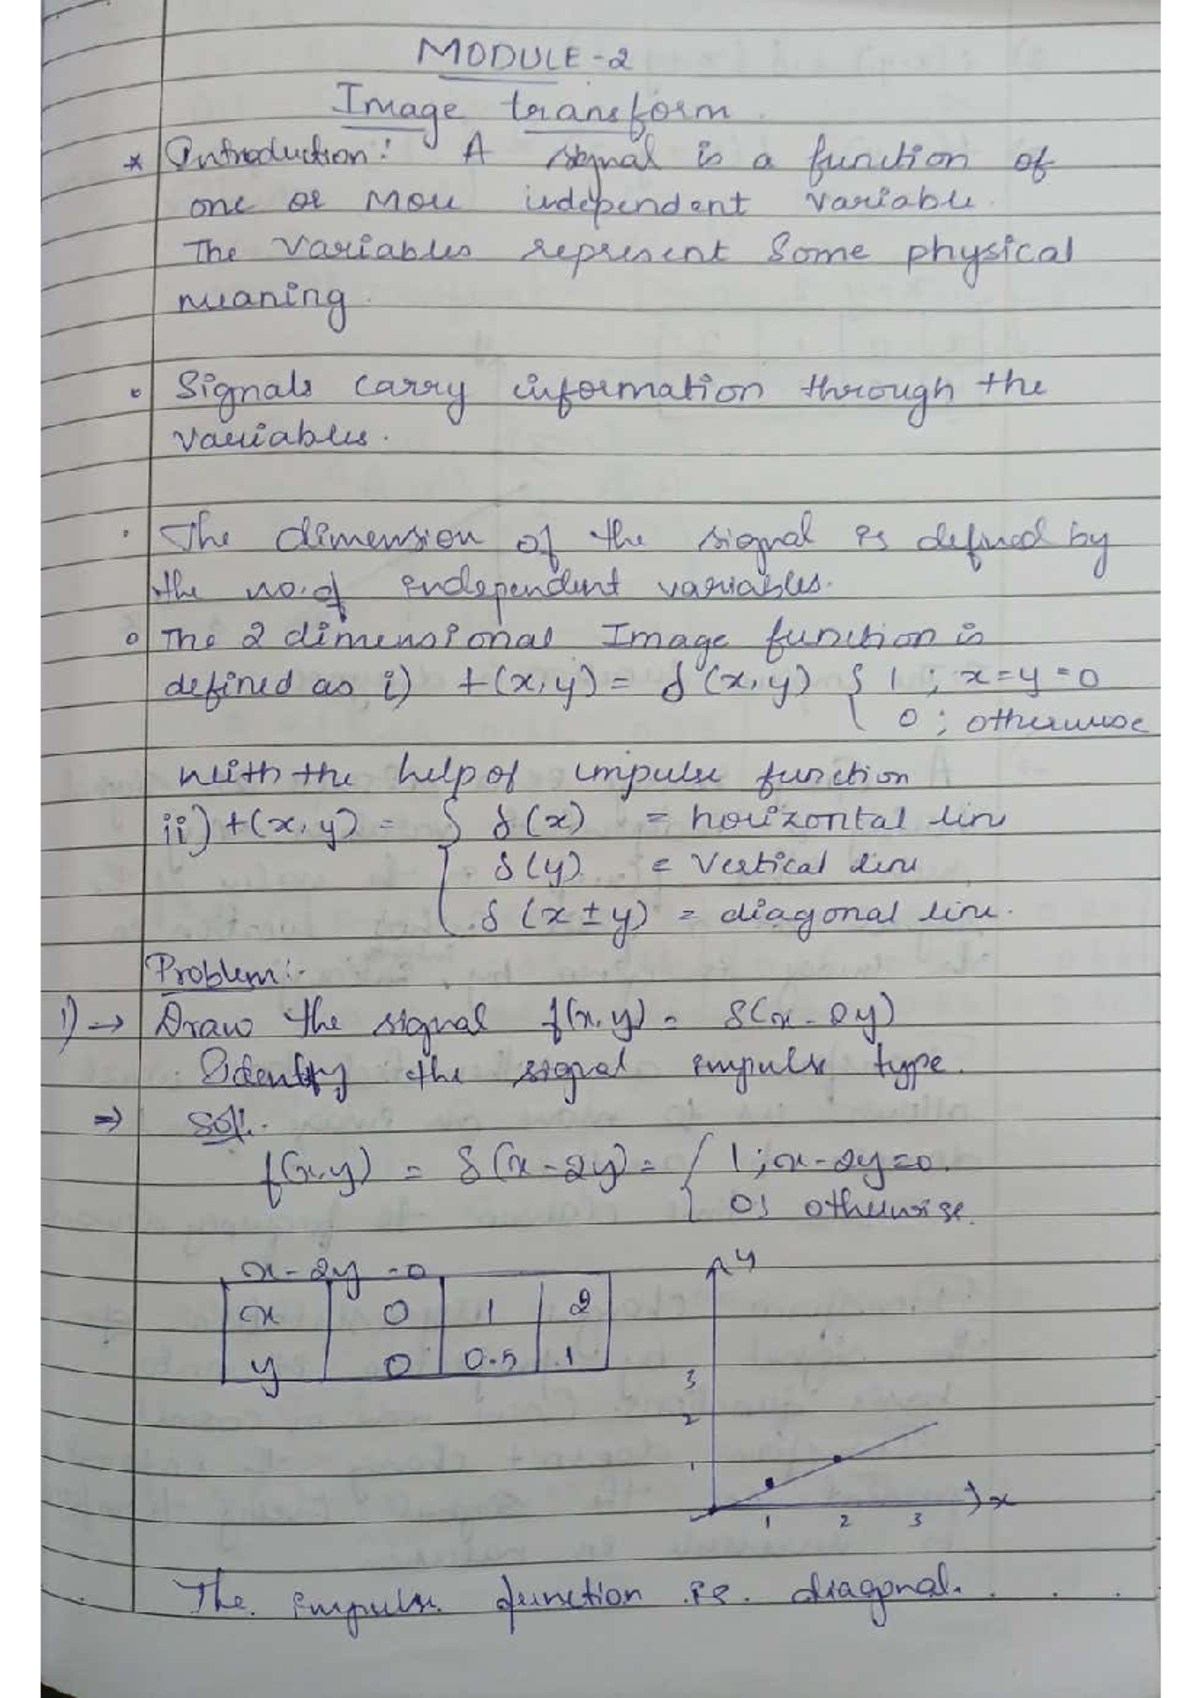 MODULE-2
Image transform
* Introduction: A signal is a function of
one or more independent variable.
The variables represent some physical
meaning.
• Signals carry information through the
variables.
• The dimension of the signal is defined by
the no. of independent variables.
• The 2 dimensional Image function is
defined as i) f(x,y) = δ(x,y) { 1 ; x=y=0
0 ; otherwise
with the help of impulse function
ii) f(x,y) = { δ(x) = horizontal line
δ(y) = vertical line
δ(x±y) = diagonal line.
Problem:-
1) → Draw the signal f(x,y) = δ(x-2y)
Identify the signal impulse type.
⇒ Sol:.
f(x,y) = δ(x-2y) = { 1 ; x-2y=0.
0; otherwise.
x-2y=0
x 0 1 2
y 0 0.5 1
y
3
2
1
1 2 3 x
The impulse function is diagonal.